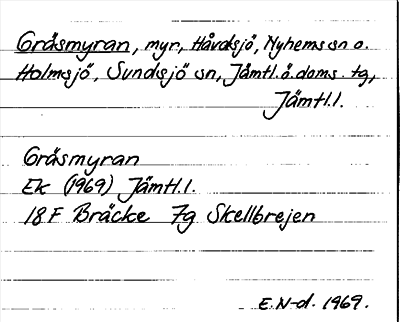 Gräsmyran, myr, Håvdsjö, Nyhems sn o.
Holmsjö, Sundsjö sn, Jämtl.ö.doms. tg,
Jämtl.l.
Gräsmyran
Ek (1969) Jämtl.l.
18F Bräcke 7g Skellbrejen
E.N-d. 1969.